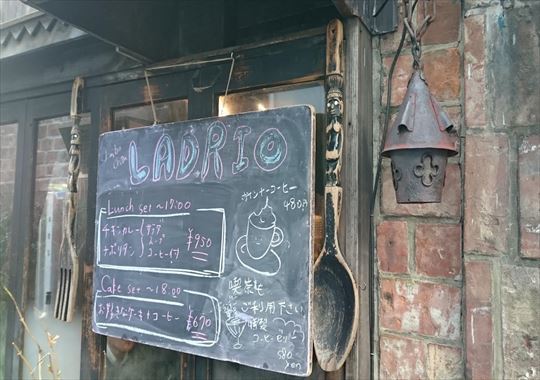 LADRIO
Lunch set ~17:00
チキンカレー サラダ
ナポリタン コーヒー
¥950
Cake set ~18:00
お好きなケーキ+コーヒー ¥670
ウインナーコーヒー
480円
喫茶も
ご利用下さい
特製
コーヒーゼリー
580
yen